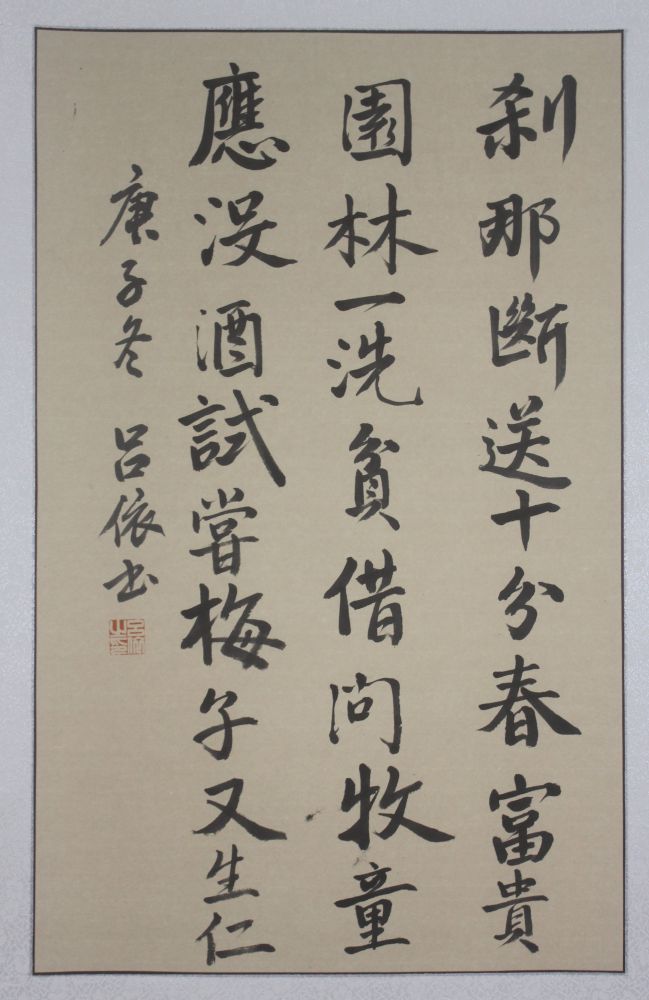 刹那斷送十分春富貴
園林一洗貧借問牧童
應沒酒試嘗梅子又生仁
庚子冬 呂依書